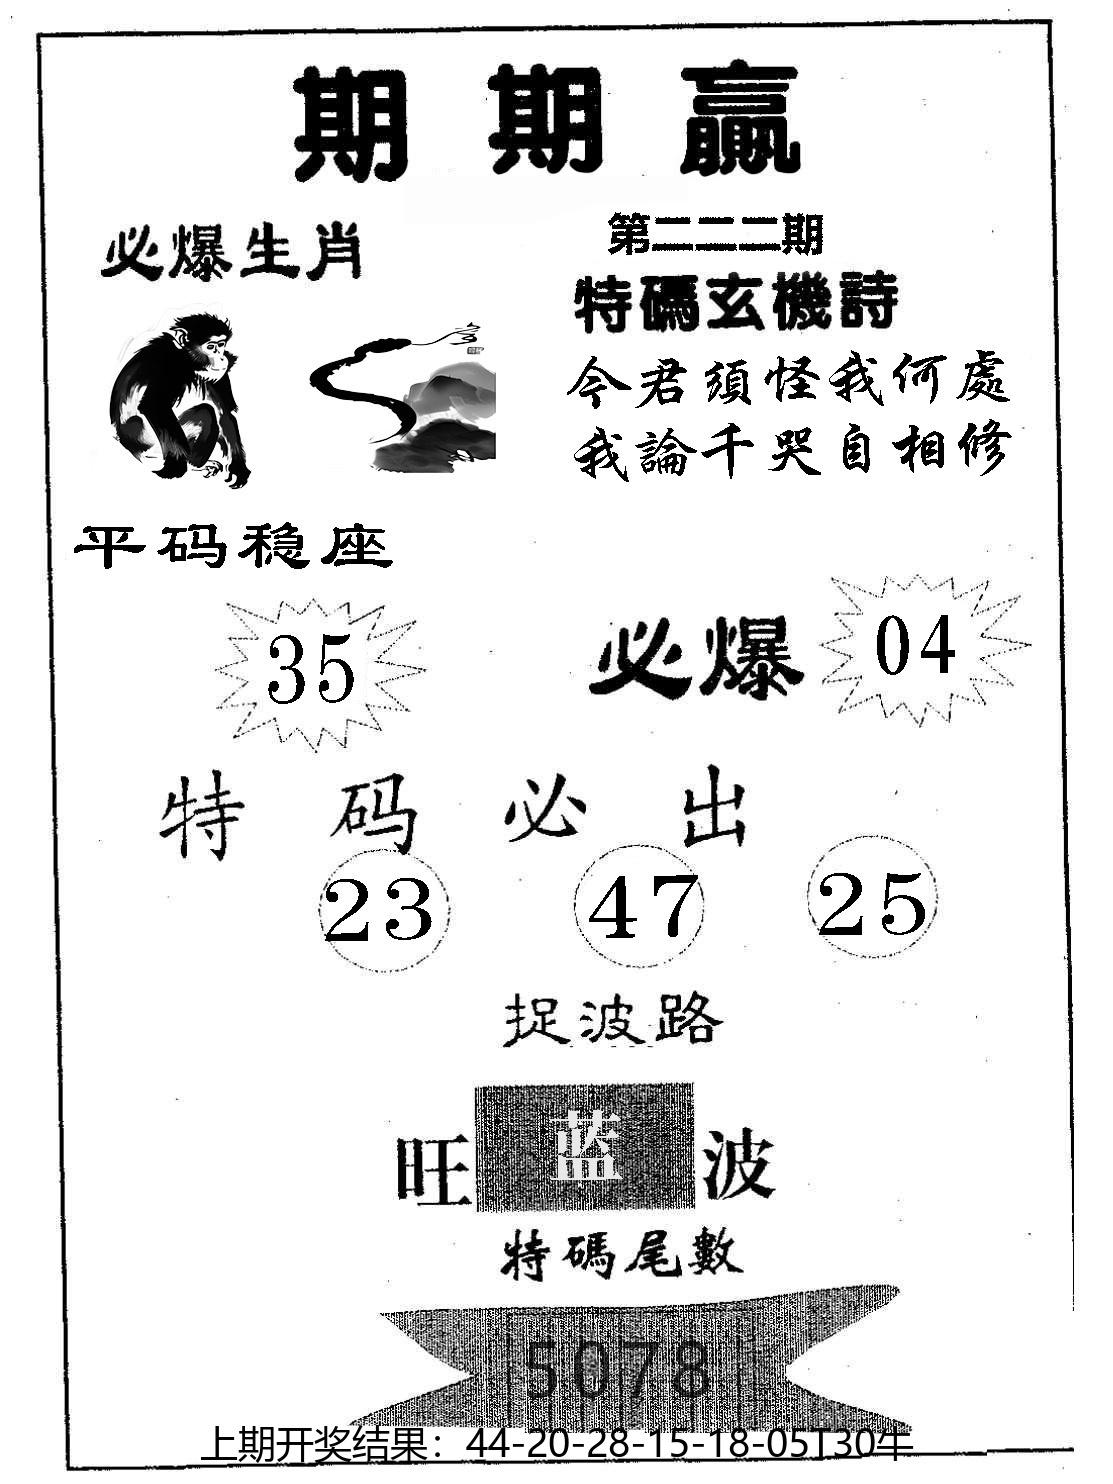 期期赢
必爆生肖
第二二二期
特碼玄機詩
今君須怪我何處
我論千哭自相修
平码稳座
35
必爆
04
特码必出
23 47 25
捉波路
旺蓝波
特碼尾數
5078
上期开奖结果：44-20-28-15-18-05T30牛